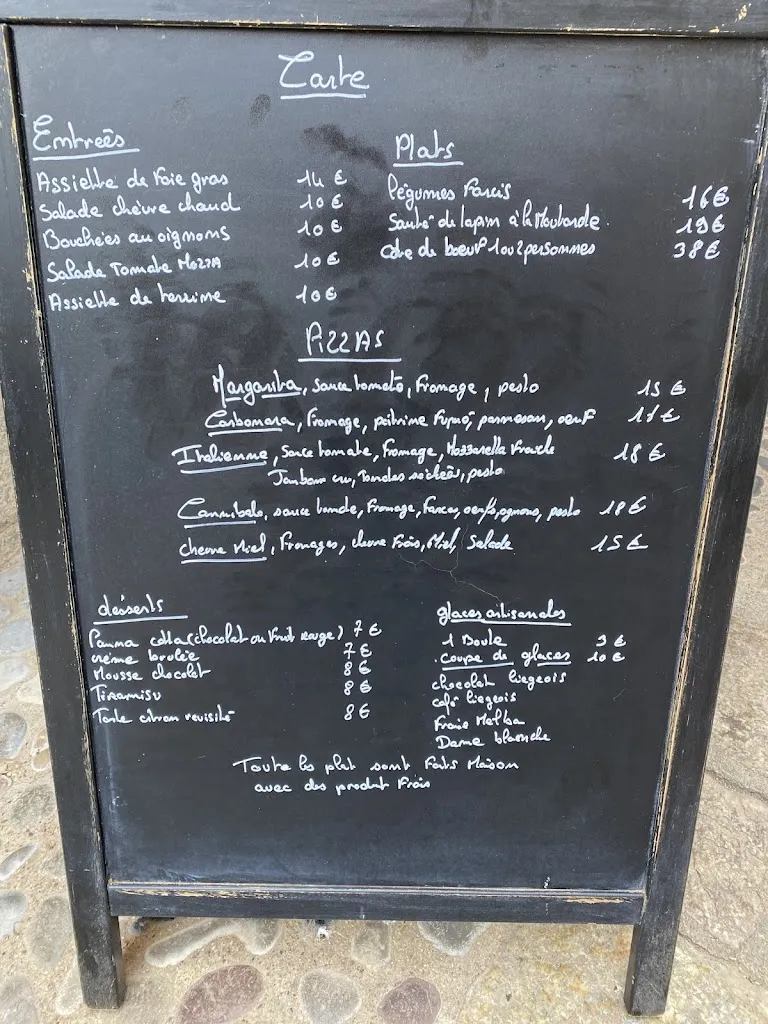 Carte
Entreés
Assiette de Foie gras 14 €
Salade chèvre chaud 10 €
Bouchées au oignons 10 €
Salade Tomate Mozza 10 €
Assiette de terrine 10 €
Plats
légumes Farcis 16€
Sauté de lapin à la Moutarde 19€
côte de boeuf 1 ou 2 personnes 38€
Pizzas
Margarita, sauce tomate, Fromage, pesto 15 €
Carbonara, Fromage, poitrine Fumé, parmesan, oeuf 17€
Italienne, sauce tomate, Fromage, Mozzarella Fraiche 18 €
Jambon cru, tomates séchées, pesto
Cannibale, sauce tomate, Fromage, Farces, oeufs, ognons, pesto 18€
chevre Miel, Fromages, chevre Frais, Miel, Salade 15€
desserts
Panna cotta (chocolat ou Fruit rouge) 7 €
crème brulée 7€
Mousse chocolat 8€
Tiramisu 8€
Tarte citron revisité 8€
glaces artisanales
1 Boule 3 €
. coupe de glaces 10 €
chocolat liegeois
café liegeois
Fraise Melba
Dame blanche
Toute les plat sont Faits Maison
avec des produit Frais